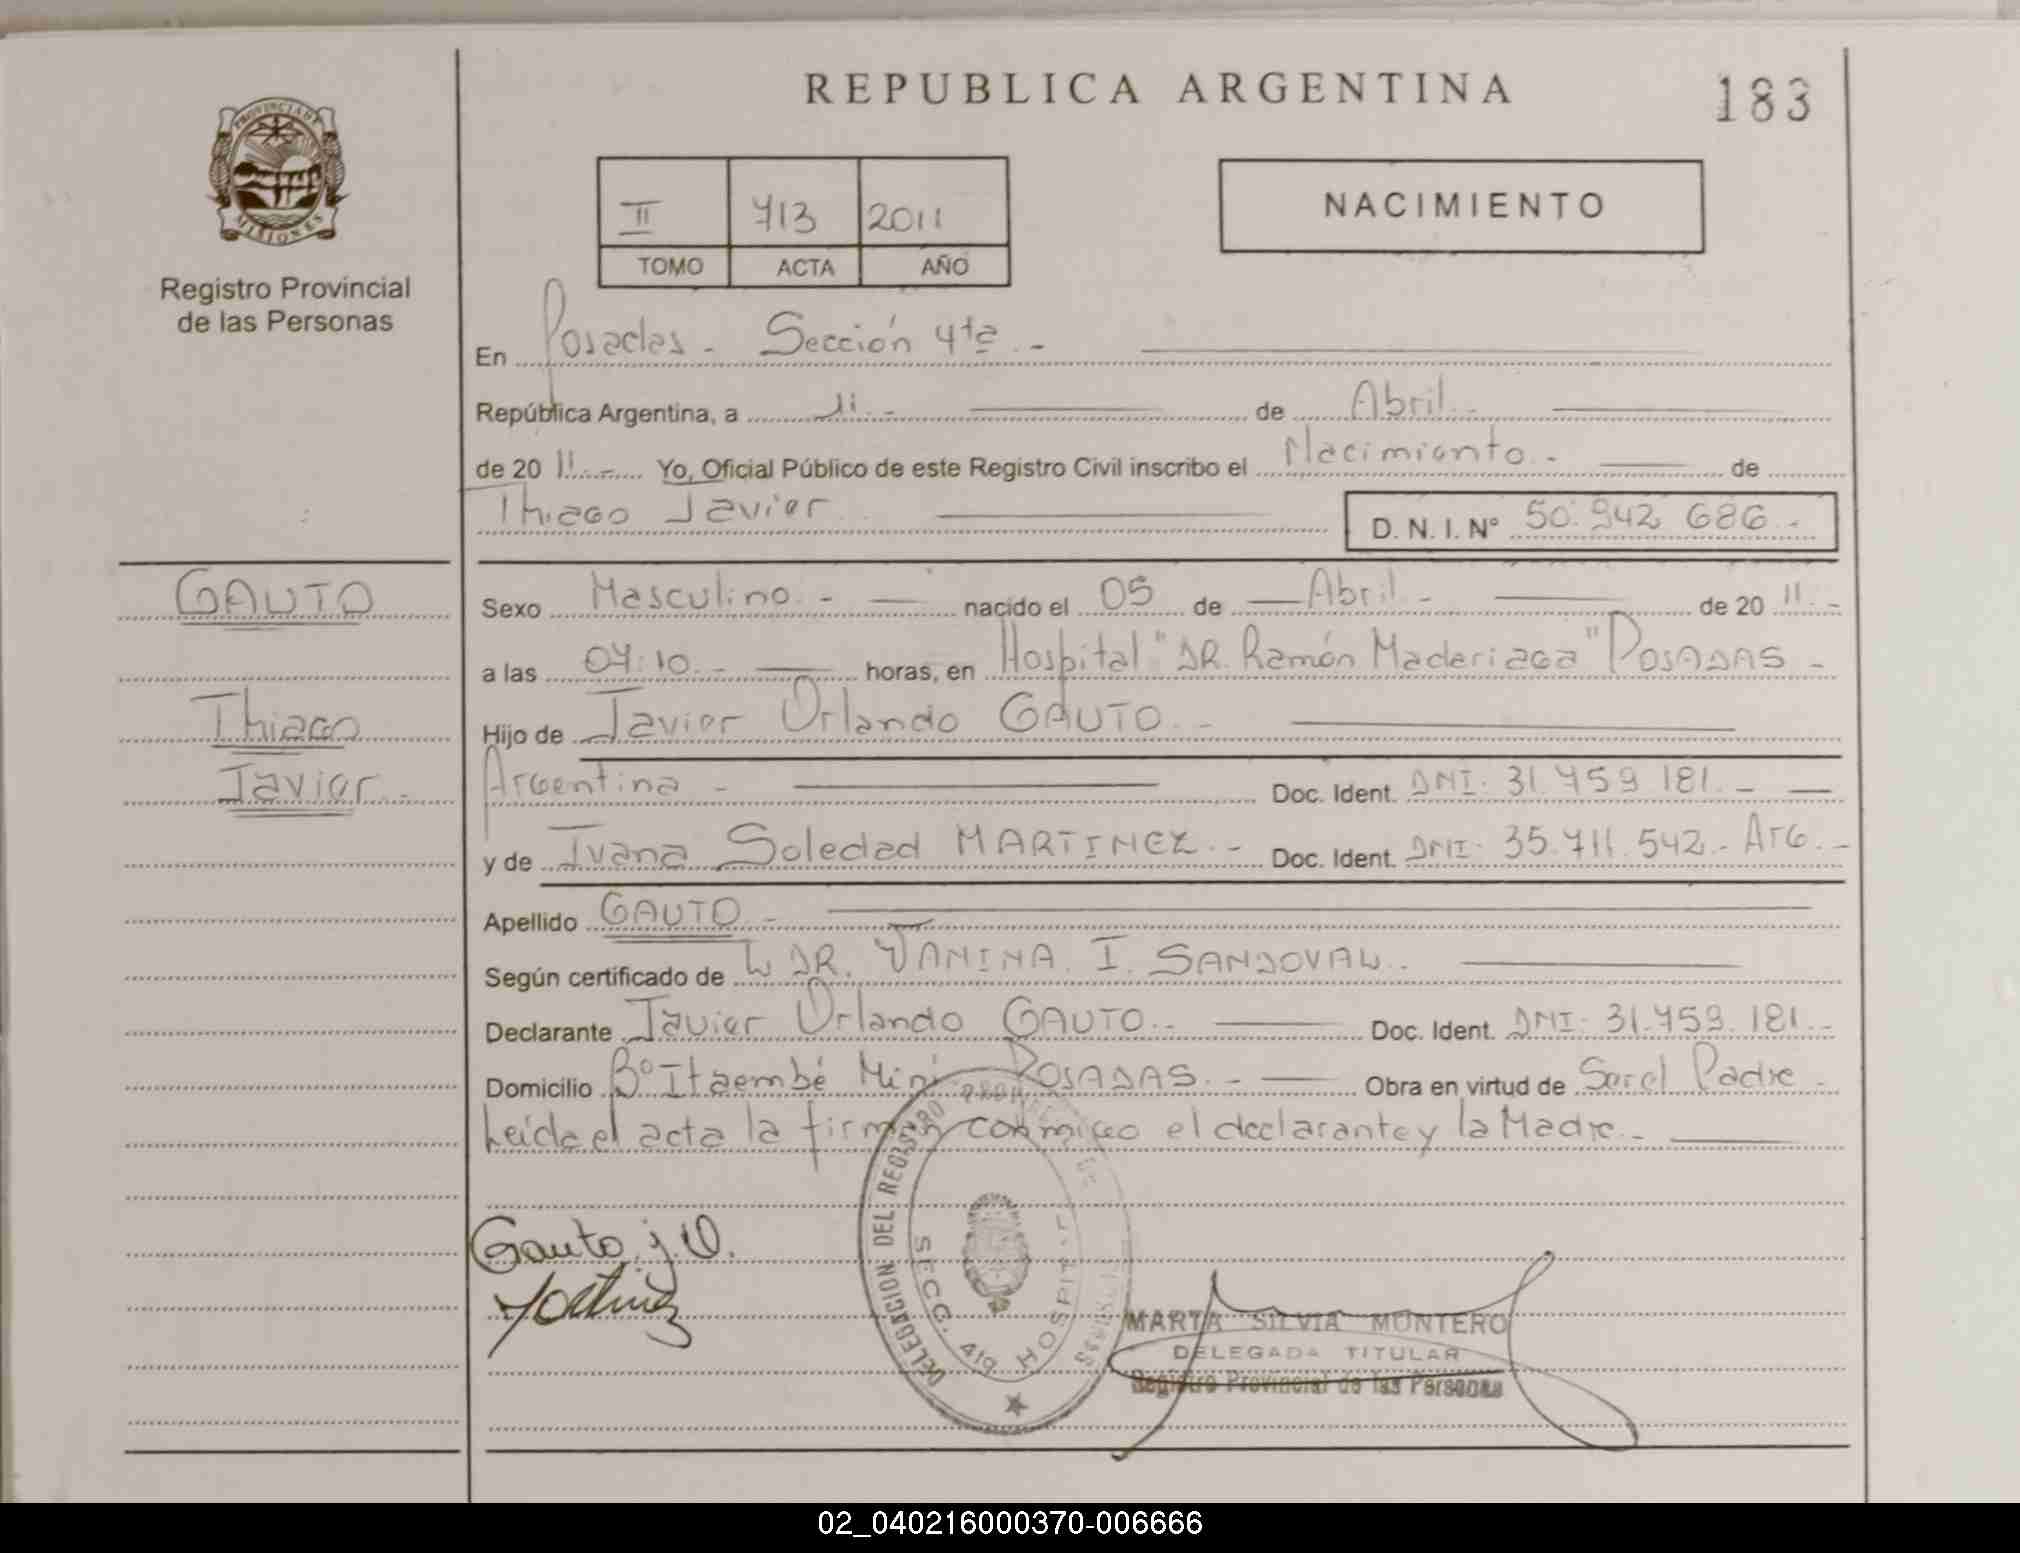 REPUBLICA ARGENTINA
183
PROVINCIA DE MISIONES
Registro Provincial
de las Personas
II 713 2011
TOMO ACTA AÑO
NACIMIENTO
En Posadas - Sección 4ta.-
República Argentina, a 11.- de Abril.-
de 20 11.- Yo, Oficial Público de este Registro Civil inscribo el Nacimiento.- de
Thiago Javier D. N. I. Nº 50.942 686.-
GAUTO
Thiago
Javier.-
Sexo Masculino.- nacido el 05 de Abril.- de 20 11.-
a las 07:10.- horas, en Hospital "DR. Ramón Madariaga" POSADAS.-
Hijo de Javier Orlando GAUTO.-
Argentina - Doc. Ident. DNI: 31.759 181.-
y de Ivana Soledad MARTINEZ.- Doc. Ident. DNI: 35.711.542.- ARG.-
Apellido GAUTO.-
Según certificado de DR. JANINA. I. SANDOVAL.
Declarante Javier Orlando GAUTO.- Doc. Ident. DNI: 31.759.181.-
Domicilio Bº Itaembé Mini POSADAS.- Obra en virtud de Ser el Padre.-
Leída el acta la firman conmigo el declarante y la Madre.-
Gauto j. O.
DELEGACION DEL REGISTRO PROVINCIAL DE LAS PERSONAS
SECC. 4ta HOSPITAL
MARTA SILVIA MONTERO
DELEGADA TITULAR
Registro Provincial de las Personas
02_040216000370-006666